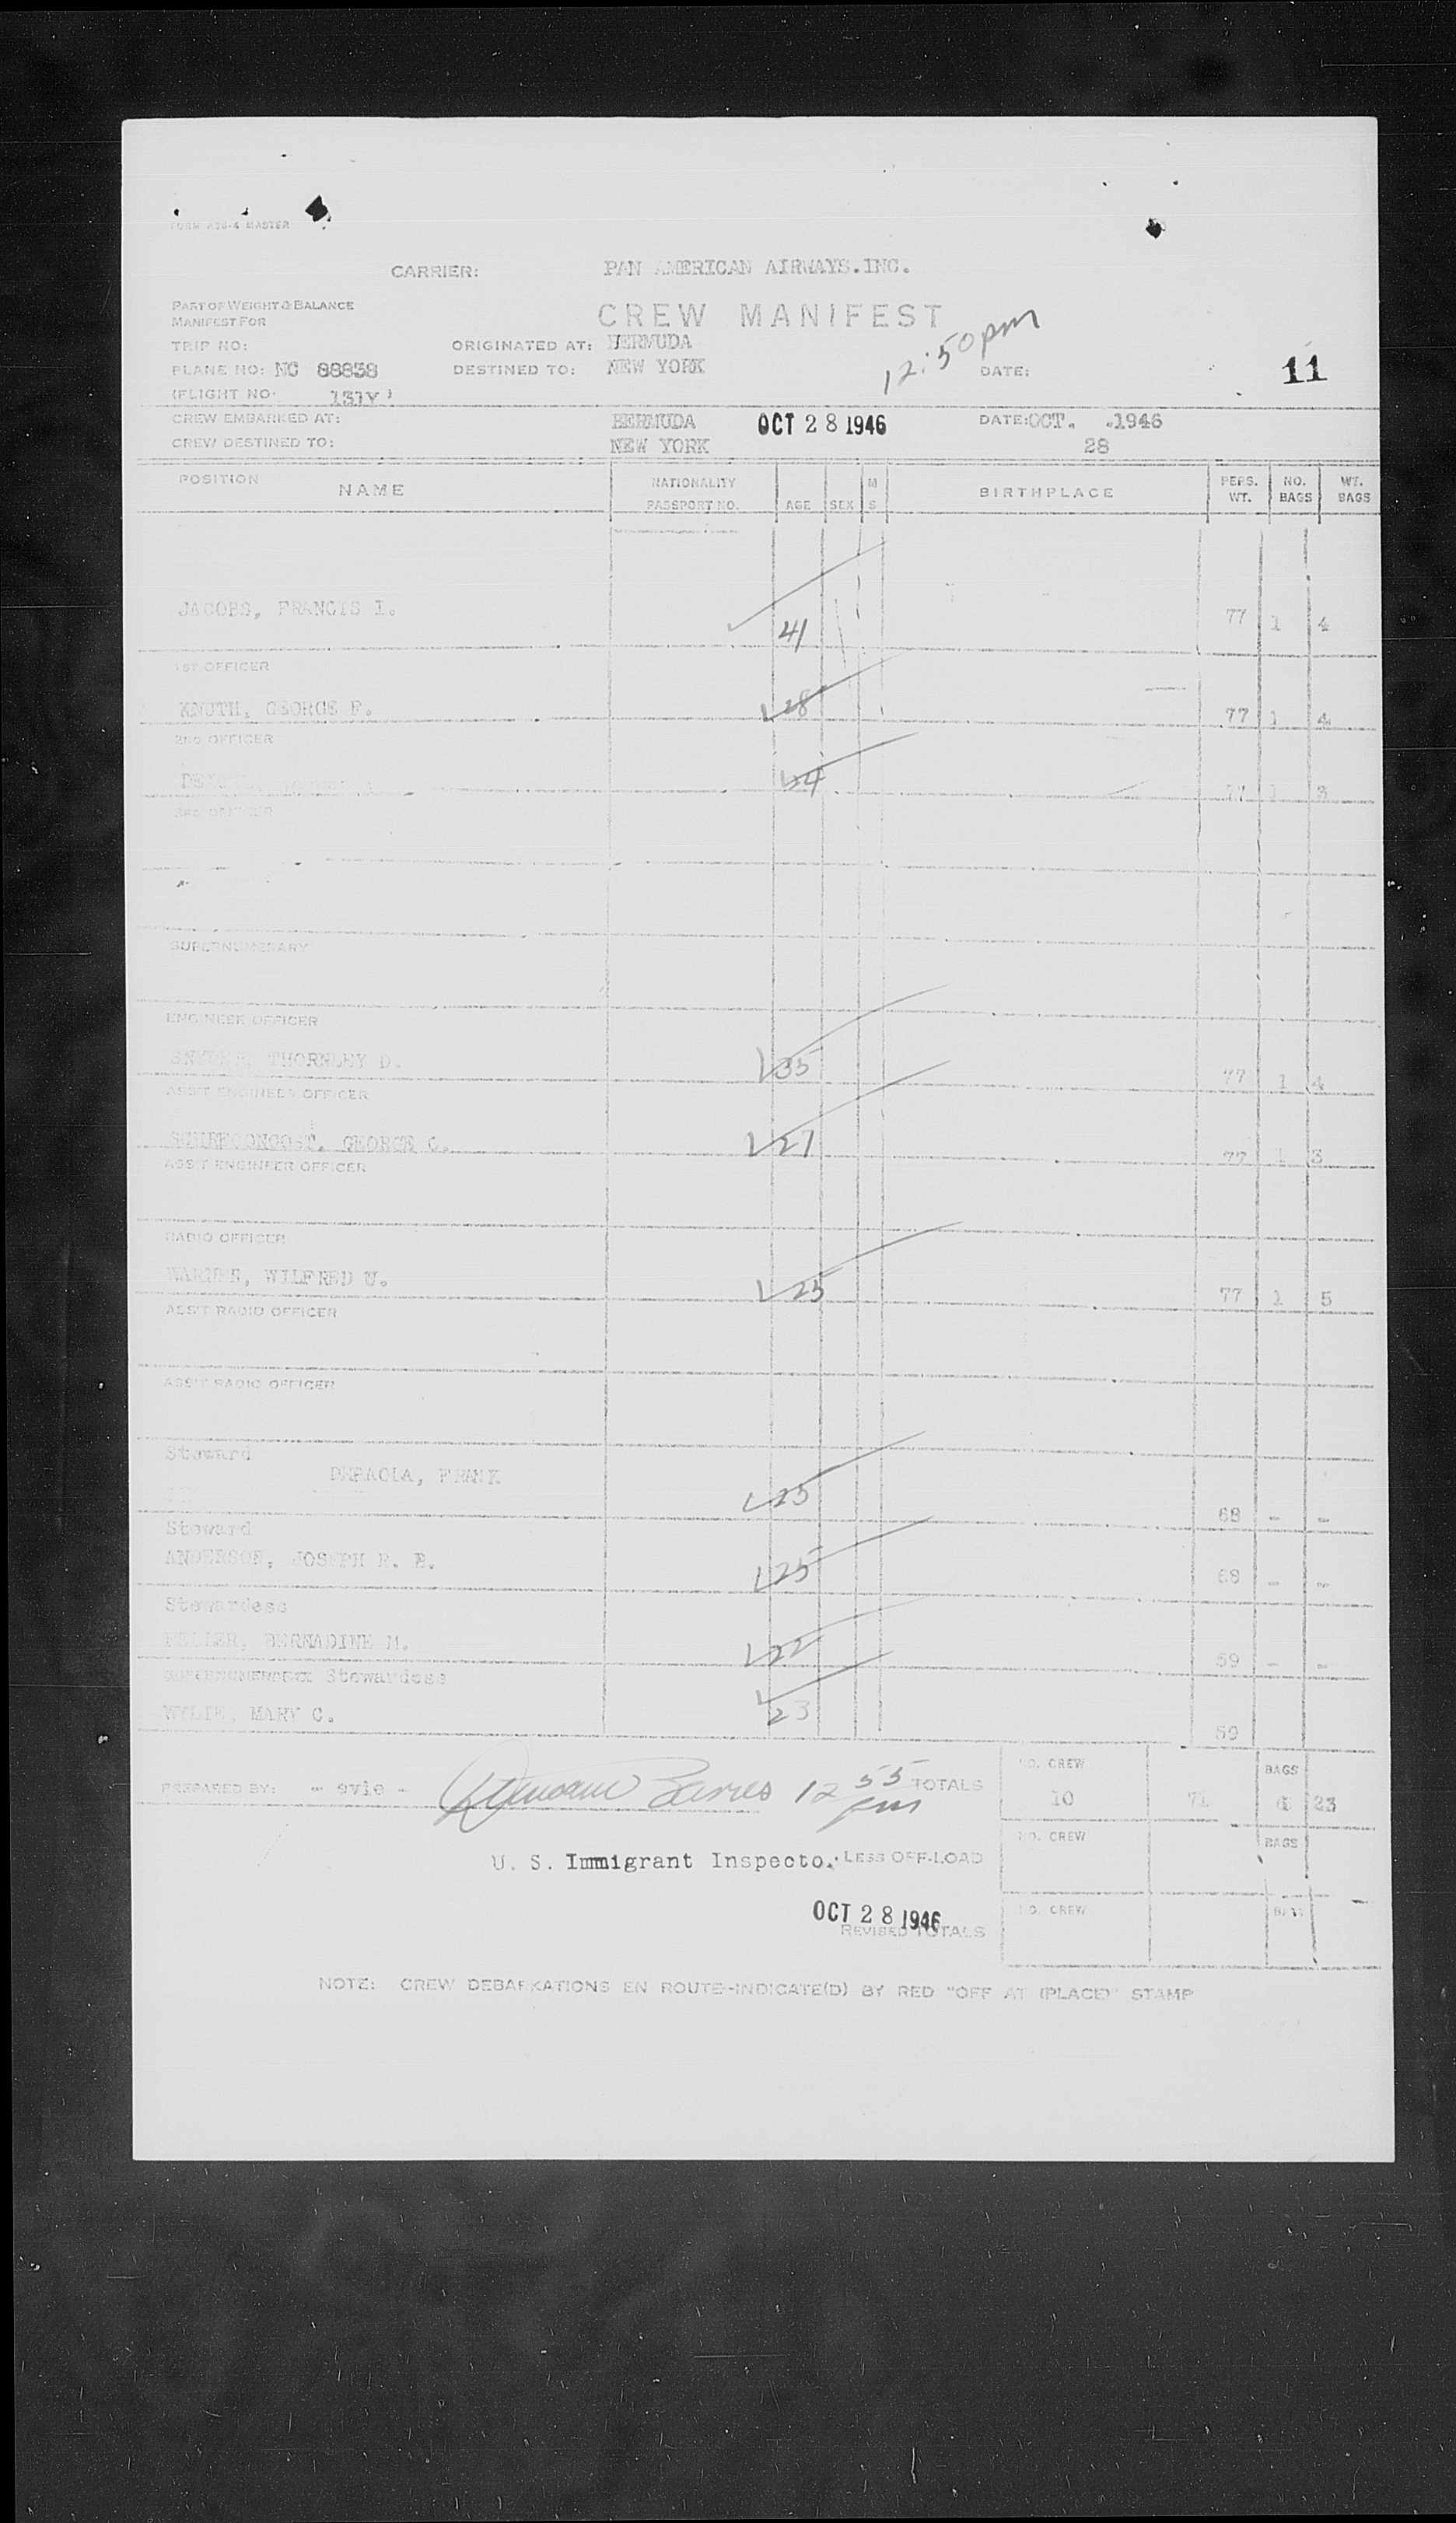 FORM 420-4 MASTER
CARRIER: PAN AMERICAN AIRWAYS.INC.
PART OF WEIGHT & BALANCE
MANIFEST FOR
CREW MANIFEST
12:50pm
TRIP NO: ORIGINATED AT: BERMUDA
PLANE NO: NC 88858 DESTINED TO: NEW YORK DATE: 11
(FLIGHT NO. 131Y)
CREW EMBARKED AT: BERMUDA OCT 28 1946 DATE: OCT. .1946
CREW DESTINED TO: NEW YORK 28
POSITION NAME NATIONALITY PASSPORT NO. AGE SEX M S BIRTHPLACE PERS. WT. NO. BAGS WT. BAGS
JACOBS, FRANCIS I. 41 77 1 4
1ST OFFICER
KNUTH, GEORGE F. 28 77 1 4
2ND OFFICER
24 77 1 3
3RD OFFICER
SUPERNUMERARY
ENGINEER OFFICER
THORNLEY D. 35 77 1 4
ASS'T ENGINEER OFFICER
GEORGE C. 27 77 1 3
ASS'T ENGINEER OFFICER
RADIO OFFICER
WILFRED U. 25 77 1 5
ASS'T RADIO OFFICER
ASS'T RADIO OFFICER
Steward
FRANK 25 68 - -
Steward
ANDERSON, JOSEPH E. B. 25 68 - -
Stewardess
BERNADINE M. 22 59 - -
Stewardess
WYLIE, MARY C. 23 59
PREPARED BY: - evie - 12 55 pm TOTALS NO. CREW 10 BAGS 23
U. S. Immigrant Inspector LESS OFF-LOAD NO. CREW BAGS
OCT 28 1946
REVISED TOTALS NO. CREW BAGS
NOTE: CREW DEBARKATIONS EN ROUTE--INDICATE(D) BY RED "OFF AT (PLACE)" STAMP